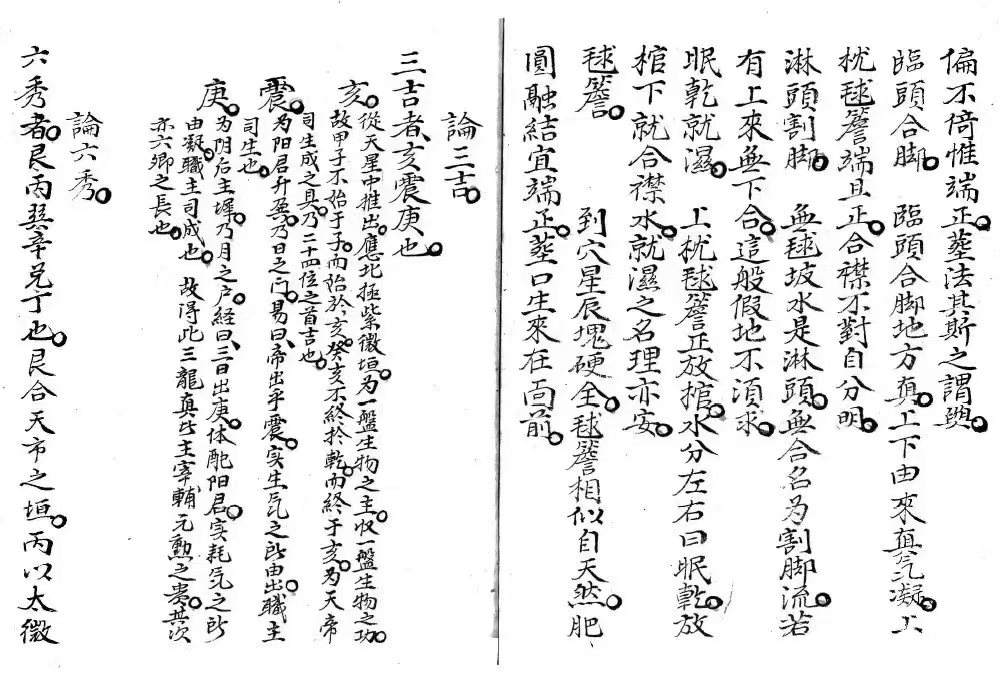 偏不倚惟端正。葬法其斯之謂與。
臨頭合脚。　臨頭合脚地方真。上下由來真气凝。上
枕毬簷端且正。合襟不對自分明。
淋頭割脚。　無毬坡水是淋頭。無合名为割脚流。若
有上來無下合。這般假地不須求。
眠乾就濕。　上枕毬簷正放棺。水分左右曰眠乾。放
棺下就合襟水。就濕之名理亦安。
毬簷。　到穴星辰塊硬全。毬簷相似自天然。肥
圓融結宜端正。葬口生來在面前。
論三吉。
三吉者、亥震庚也。
亥。從天星中推出。應北極紫微垣。为一盤生物之主。収一盤生物之功。
故甲子不始于子。而始於亥。癸亥不終於乾。而終于亥。为天帝
司生成之具。乃二十四位之首吉也。
震。为阳君升殿。乃日之门。易曰、帝出乎震。实生气之所由出。職主
司生也。
庚。为阴后主墀。乃月之户。経曰、三日出庚。体配阳君。实耗气之所
由凝。職主司成也。　故得此三龍真皆主宰輔元勲之貴。其次
亦六卿之長也。
論六秀。
六秀者。艮丙巽辛兌丁也。艮合天市之垣。丙以太微